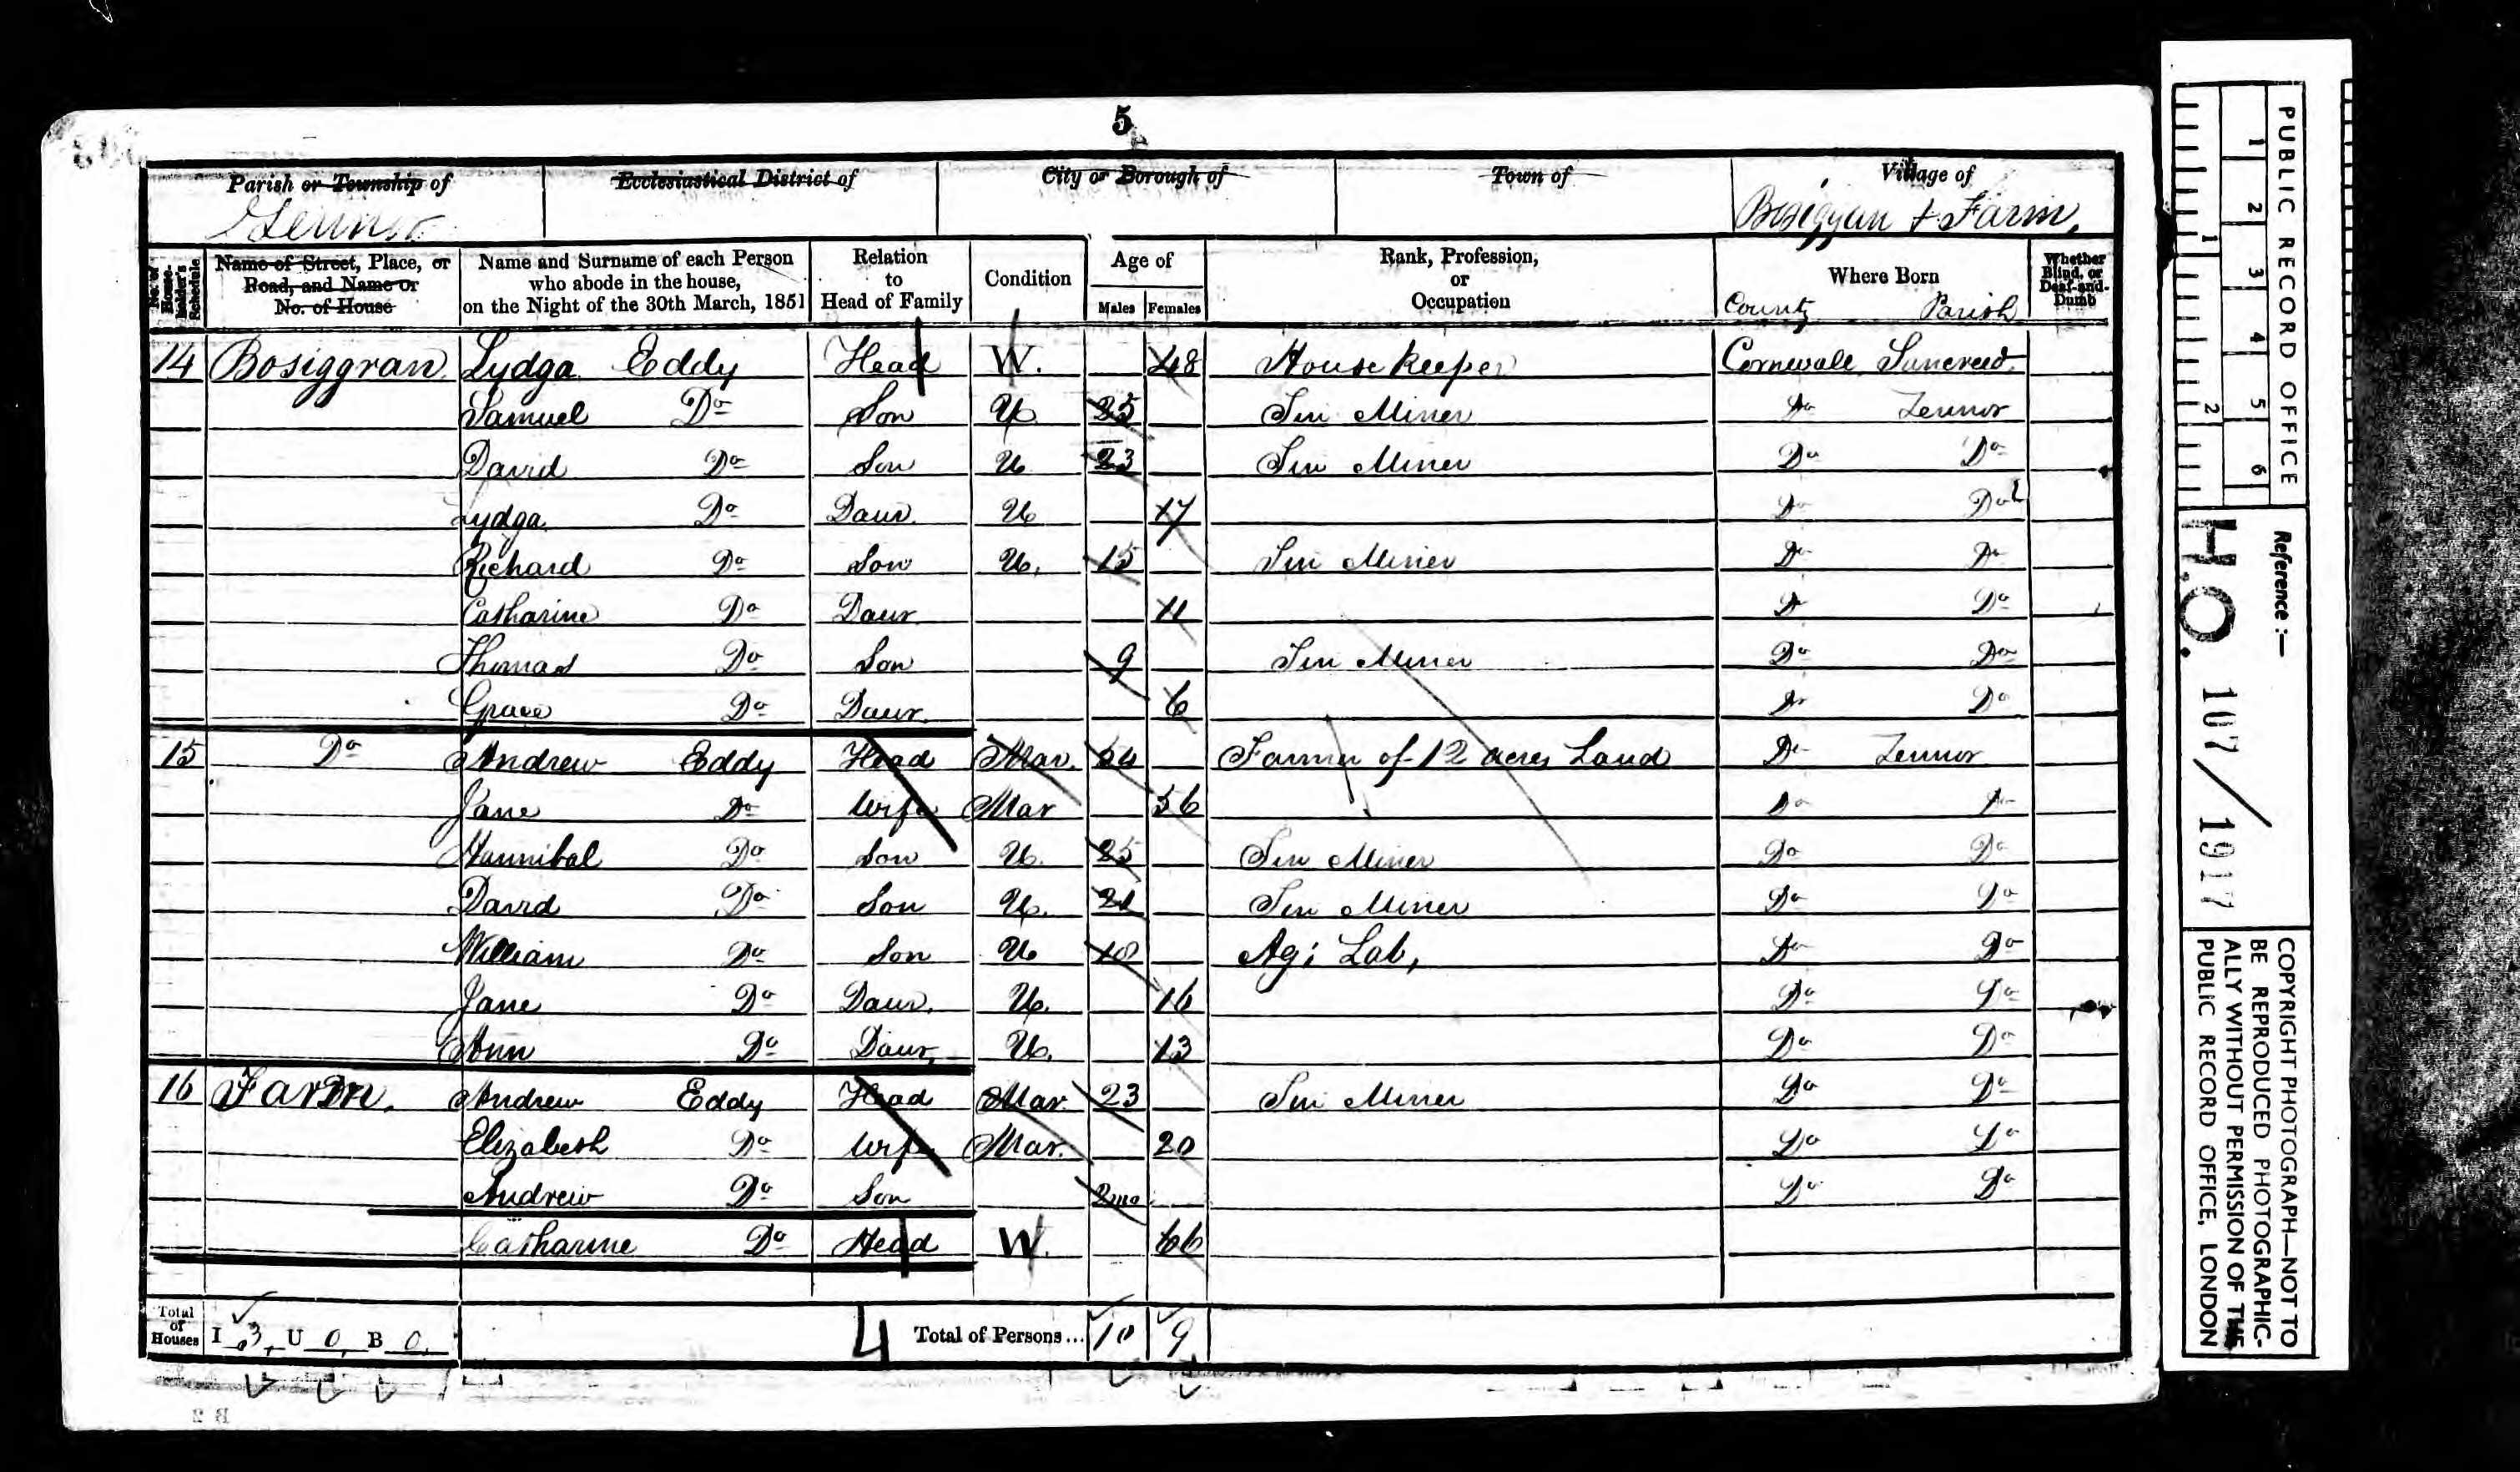 5
Parish or Township of Ecclesiastical District of City or Borough of Town of Village of
Zennor Bosiggran & Farm.
No. of House-holder's Schedule
Name of Street, Place, or Road, and Name or No. of House
Name and Surname of each Person who abode in the house, on the Night of the 30th March, 1851
Relation to Head of Family
Condition
Age of
Males Females
Rank, Profession, or Occupation
Where Born
County Parish
Whether Blind, or Deaf-and-Dumb
14 Bosiggran Lydga Eddy Head W. 48 House Keeper Cornwall Sancreed
Samuel Do Son U 25 Tin Miner Do Zennor
David Do Son U 23 Tin Miner Do Do
Lydga Do Daur U 17 Do Do
Richard Do Son U. 15 Tin Miner Do Do
Catharine Do Daur 11 Do Do
Thomas Do Son 9 Tin Miner Do Do
Grace Do Daur. 6 Do Do
15 Do Andrew Eddy Head Mar. 54 Farmer of 12 acres Land Do Zennor
Jane Do Wife Mar 56 Do Do
Hannibal Do Son U. 25 Tin Miner Do Do
David Do Son U. 21 Tin Miner Do Do
William Do Son U 18 Ag: Lab, Do Do
Jane Do Daur. U. 16 Do Do
Ann Do Daur. U. 13 Do Do
16 Farm. Andrew Eddy Head Mar. 23 Tin Miner Do Do
Elizabeth Do Wife Mar. 20 Do Do
Andrew Do Son 2mo Do Do
Catharine Do Head W. 66
Total of Houses I 3, U 0, B 0. 4 Total of Persons... 10 9
B 2
PUBLIC RECORD OFFICE
1 2 3 4 5 6
1 2
Reference :—
H.O. 107/1917
COPYRIGHT PHOTOGRAPH—NOT TO
BE REPRODUCED PHOTOGRAPHIC-
ALLY WITHOUT PERMISSION OF THE
PUBLIC RECORD OFFICE, LONDON